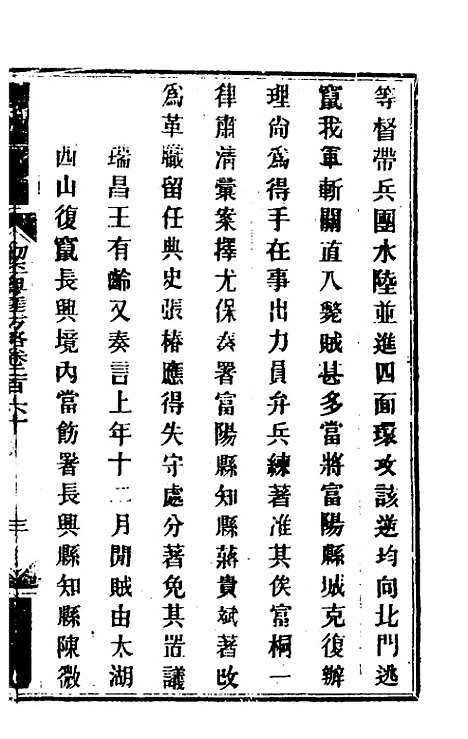 等督帶兵團水陸並進四面環攻該逆均向北門逃
竄我軍斬關直入斃賊甚多當將富陽縣城克復辦
理尚爲得手在事出力員弁兵練著准其俟富桐一
律肅清彙案擇尤保奏署富陽縣知縣蔣貴斌著改
爲革職留任典史張椿應得失守處分著免其置議
瑞昌王有齡又奏言上年十二月閒賊由太湖
西山復竄長興境內當飭署長興縣知縣陳徵
方略卷二百六十
三